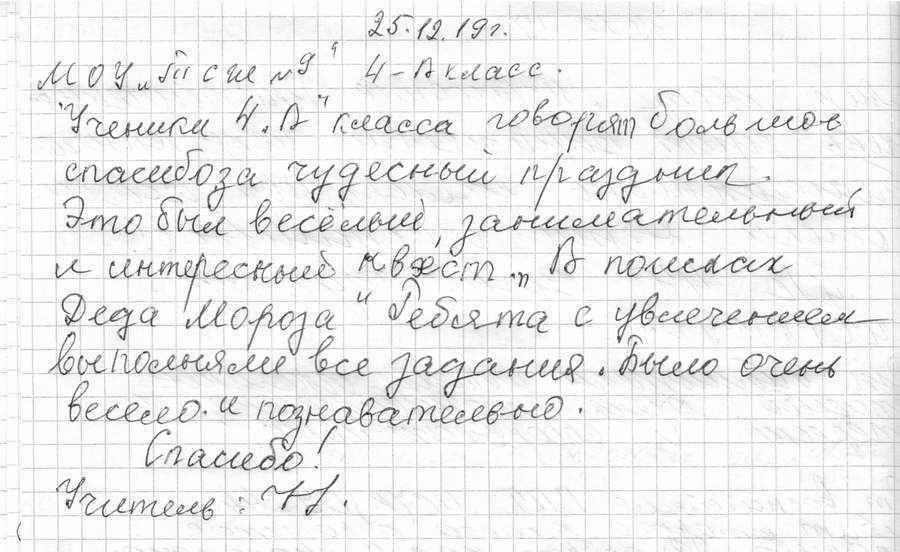 25.12.19г.
МОУ „ГП СШ №9" 4-А класс.
"Ученики 4.А" класса говорят большое
спасибо за чудесный праздник.
Это был весёлый, занимательный
и интересный квест „В поисках
Деда Мороза" Ребята с увлечением
выполняли все задания. Было очень
весело. и познавательно.
Спасибо!
Учитель: